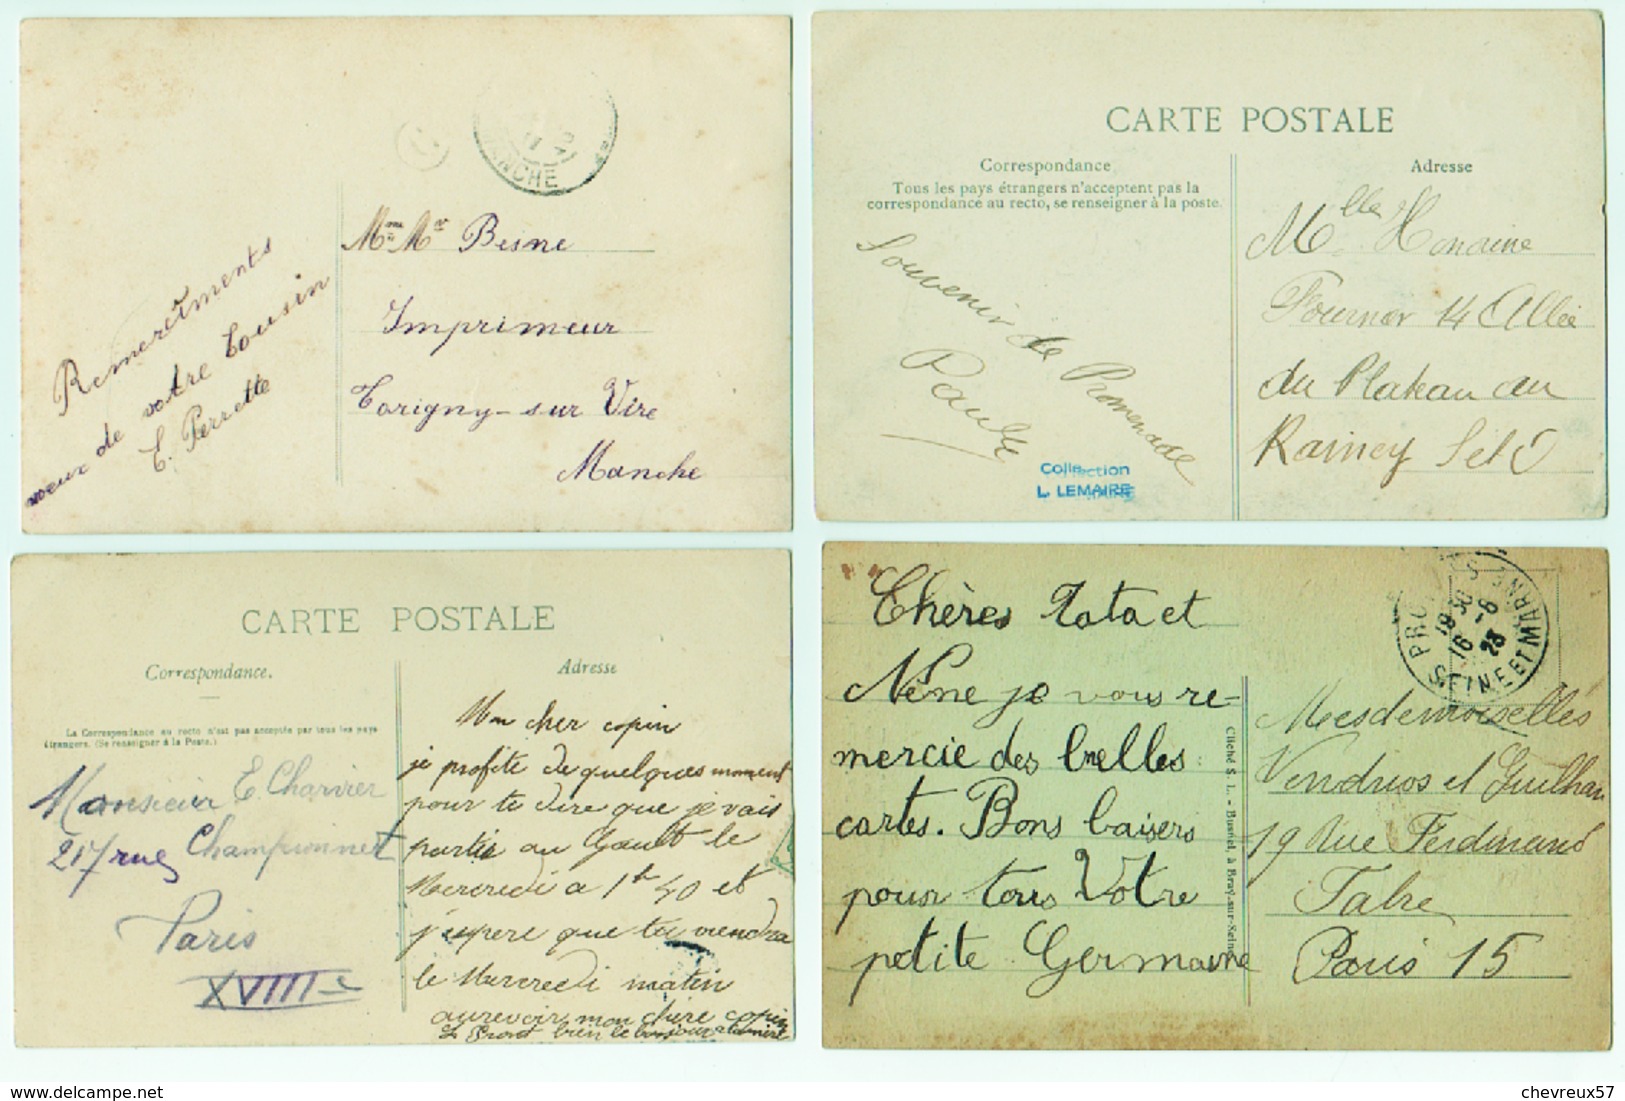 MANCHE
Mme Mr Besne
Imprimeur
Torigny-sur Vire
Manche
Remercîments
voeux de votre Cousin
E. Perrette
CARTE POSTALE
Correspondance
Tous les pays étrangers n'acceptent pas la
correspondance au recto, se renseigner à la poste.
Adresse
Souvenir de Promenade
Paule
Collection
L. LEMAIRE
Mlle Honorine
Fournier 14 Allée
du Plateau au
Rainey S et O
CARTE POSTALE
Correspondance.
La Correspondance au recto n'est pas acceptée par tous les pays
étrangers. (Se renseigner à la Poste.)
Monsieur E. Charrier
217 rue Championnet
Paris
XVIIIe
Adresse
Mon cher copin
je profite de quelques moment
pour te dire que je vais
partir au Gault le
Mercredi a 1h 40 et
j'espere que tu viendra
le Mercredi matin
aurevoir mon chere copin
bien le bonjour
Chères Tata et
Nène je vous re-
mercie des belles
cartes. Bons baisers
pour tous Votre
petite Germaine
Cliché S. L. - Busnel, à Bray-sur-Seine
PROVINS
18 30
16 - 6
23
SEINE ET MARNE
Mesdemoiselles
Vendrios et Guilhau
19 Rue Ferdinand
Fabre
Paris 15
chevreux57